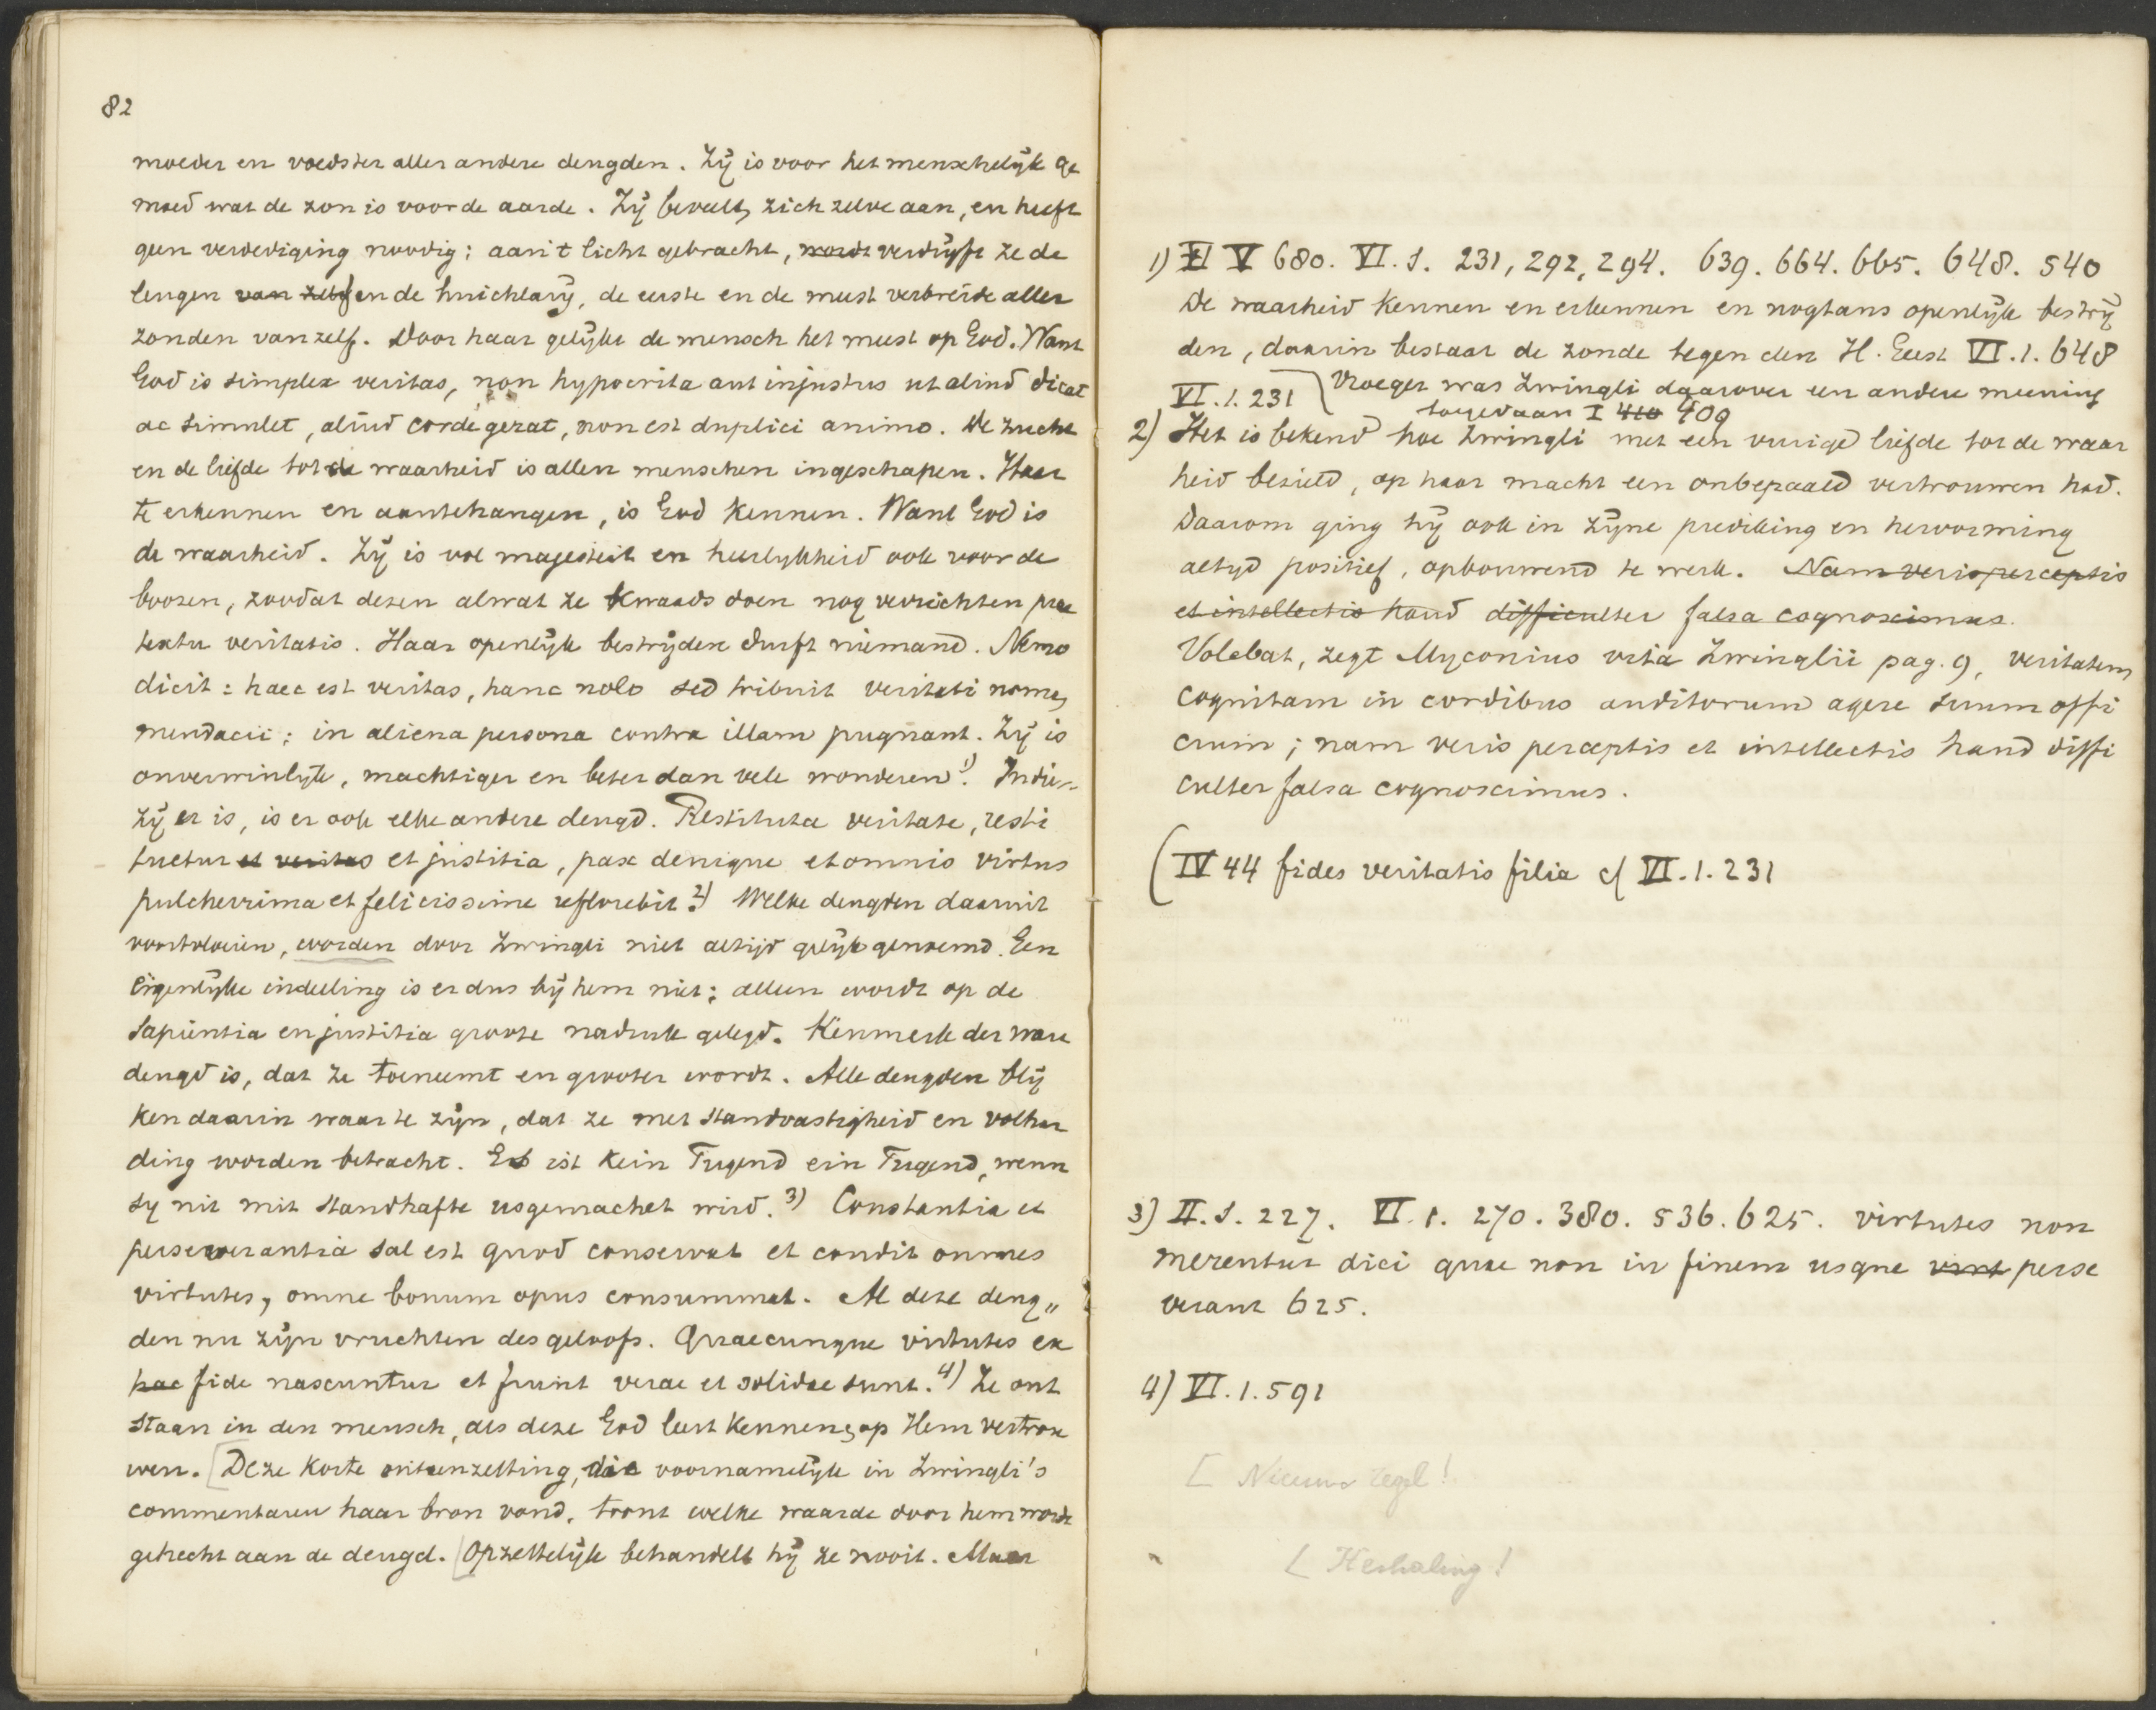 82
moeder en voedster aller andere deugden. Zij is voor het menschelijk ge
moed wat de zon is voor de aarde. Zij beveelt zich zelve aan, en heeft
geen verdediging noodig; aan 't licht gebracht, wordt verdrijft ze de
leugen van zelf en de huichlarij, de eerste en de meest verbreide aller
zonden van zelf. Door haar gelijkt de mensch het meest op God. Want
God is simplex veritas, non hypocrita aut injustus ut aliud dicat
ac simulet, aliud corde gerat, non est duplici animo. De zucht
en de liefde tot de waarheid is allen menschen ingeschapen. Haar
te erkennen en aantehangen, is God kennen. Want God is
de waarheid. Zij is vol majesteit en heerlijkheid ook voor de
boozen, zoodat dezen alwat ze kwaads doen nog verrichten prae
textu veritatis. Haar openlijk bestrijden durft niemand. Nemo
dicit: haec est veritas, hanc nolo sed tribuit veritati nomen
mendacii; in aliena persona contra illam pugnant. Zij is
onverwinlijk, machtiger en beter dan vele wonderen 1). Indien
zij er is, is er ook elke andere deugd. Restituta veritate, resti
tuetur et veritas et justitia, pax denique et omnis virtus
pulcherrima et felicissime reflorebit 2) Welke deugden daaruit
voortvloeien, worden door Zwingli niet altijd gelijk genoemd. Een
eigenlijke indeeling is er dus bij hem niet; alleen wordt op de
sapientia en justitia groote nadruk gelegd. Kenmerk der ware
deugd is, dat ze toeneemt en grooter wordt. Alle deugden blij
ken daarin waar te zijn, dat ze met standvastigheid en volhar
ding worden betracht. Es ist kein Tugend ein Tugend, wenn
sy nit mit standhafte usgemachet wird. 3) Constantia et
perseverantia sal est quod conservat et condit omnes
virtutes, omne bonum opus consummat. Al deze deug„
den nu zijn vruchten des geloofs. Quaecunque virtutes ex
hac fide nascuntur et fiunt verae et solidae sunt. 4) Ze ont
staan in den mensch, als deze God leert kennen, op Hem vertrou
wen. [Deze korte uiteenzetting, die voornamelijk in Zwingli's
commentaren haar bron vond, toont welke waarde door hem wordt
gehecht aan de deugd. [Opzettelijk behandelt hij ze nooit. Maar
1) II V 680. VI. 1. 231, 292, 294. 639. 664. 665. 648. 540
De waarheid kennen en erkennen en nogtans openlijk bestrij
den, daarin bestaat de zonde tegen den H. Geest VI. 1. 648
VI. 1. 231 Vroeger was Zwingli daarover een andere meening
toegedaan I 410 409
2) Het is bekend hoe Zwingli met een vurige liefde tot de waar
heid bezield, op haar macht een onbepaald vertrouwen had.
Daarom ging hij ook in zijne prediking en hervorming
altijd positief, opbouwend te werk. Nam veris perceptis
et intellectis haud difficulter falsa cognoscimus.
Volebat, zegt Myconius vita Zwinglii pag. 9, veritatem
cognitam in cordibus auditorum agere suum offi
cium; nam veris perceptis et intellectis haud diffi
culter falsa cognoscimus.
(IV 44 fides veritatis filia cf VI. 1. 231
3) II. 1. 227. VI. 1. 270. 380. 536. 625. virtutes non
merentur dici quae non in finem usque perse
verant 625.
4) VI. 1. 591
[ Nieuwe regel!
[ Herhaling!